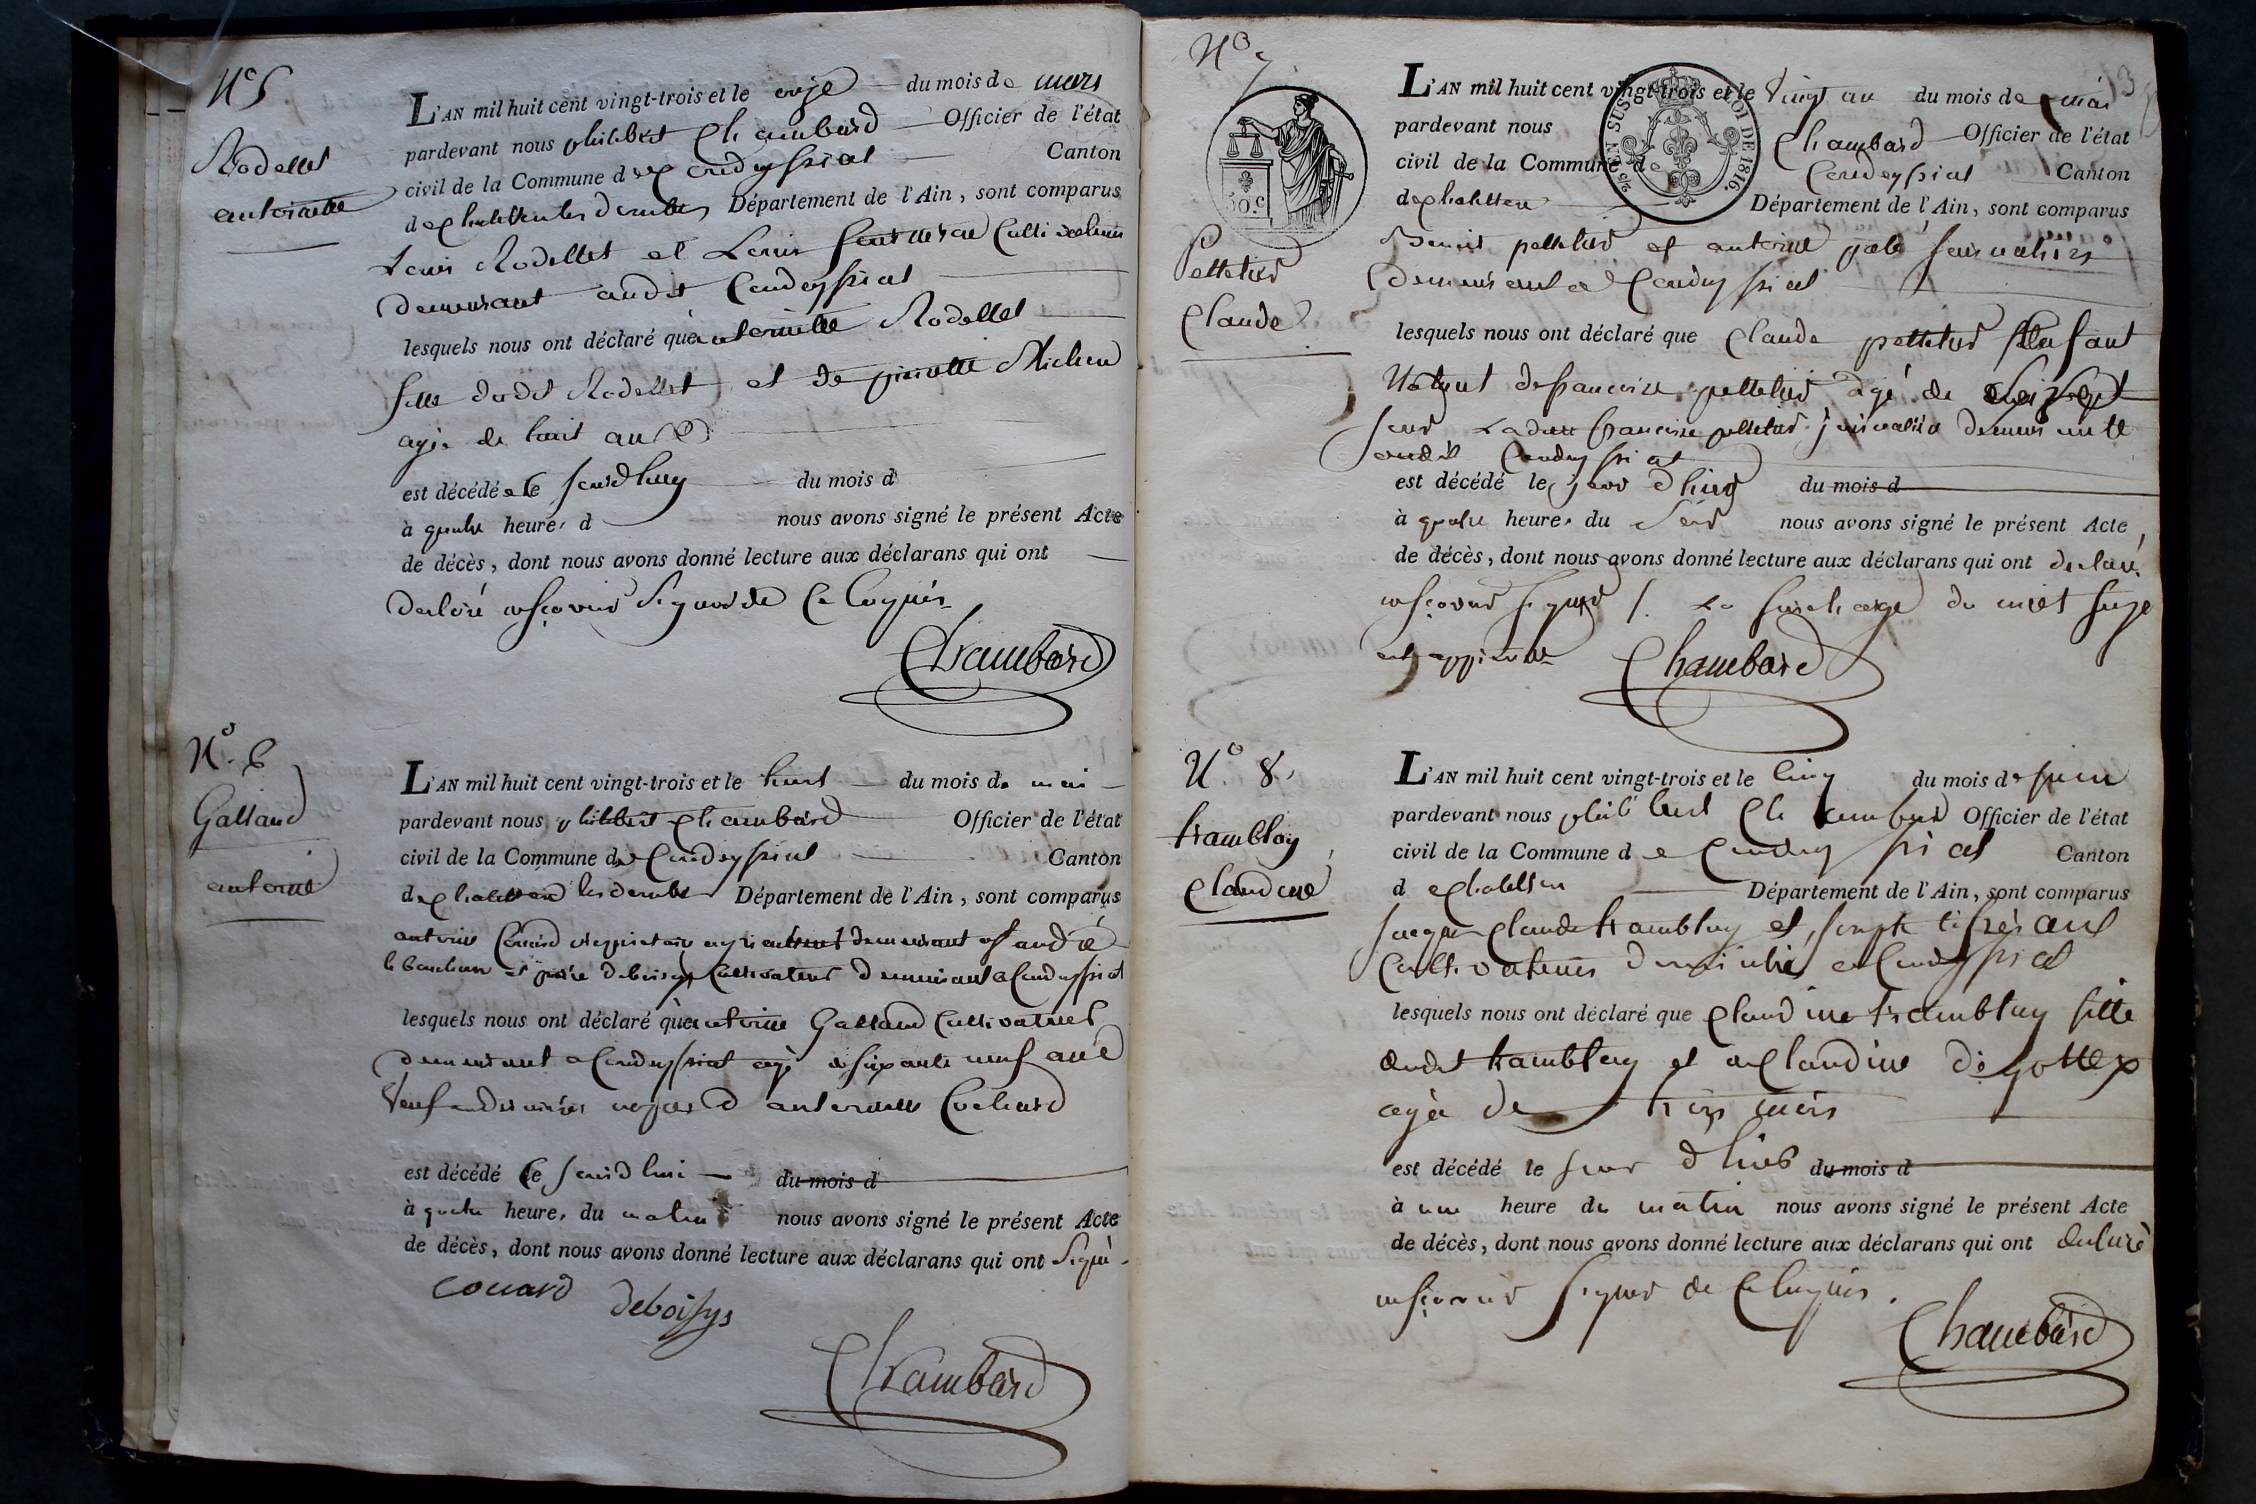 N° 5
Rodellet
antoinette
L'AN mil huit cent vingt-trois et le onze du mois de mars
pardevant nous philibert Chambard Officier de l'état
civil de la Commune de Condeyssiat Canton
de chatillon les dombes Département de l'Ain, sont comparus
Louis Rodellet et Louis cultivateurs
demeurant audit Condeyssiat
lesquels nous ont déclaré que antoinette Rodellet
fille dudit Rodellet et de pierrette Michon
agée de huit ans
est décédé le jourdhuy du mois d
à quatre heures d nous avons signé le présent Acte
de décès, dont nous avons donné lecture aux déclarans qui ont
declaré ne sçavoir signer de ce enquis
Chambard
N° 6
Galland
antoine
L'AN mil huit cent vingt-trois et le huit du mois de mai
pardevant nous philibert Chambard Officier de l'état
civil de la Commune de Condeyssiat Canton
de chatillon les dombes Département de l'Ain, sont comparus
antoine Couard propriétaire demeurant a st andré
le bouchoux et deboissys cultivateur demeurant a Condeyssiat
lesquels nous ont déclaré que antoine Galland cultivateur
demeurant a Condeyssiat agé de soixante neuf ans
veuf en dernières noces d antoinette Cochard
est décédé le jourdhui du mois d
à quatre heures du matin nous avons signé le présent Acte
de décès, dont nous avons donné lecture aux déclarans qui ont signé
couard deboissys
Chambard
N° 7
Pelletier
Claude
50.C
25 C. EN SUS LOI DE 1816.
13
L'AN mil huit cent vingt-trois et le vingt un du mois de mai
pardevant nous Chambard Officier de l'état
civil de la Commune de Condeyssiat Canton
de chatillon Département de l'Ain, sont comparus
Benoit pelletier et antoine journaliers
demeurant a Condeyssiat
lesquels nous ont déclaré que Claude pelletier enfant
naturel de françoise pelletier agé de
jour ladite françoise pelletier journalière demeurante
audit Condeyssiat
est décédé le jour d'hier du mois d
à quatre heures du soir nous avons signé le présent Acte
de décès, dont nous avons donné lecture aux déclarans qui ont declaré
ne sçavoir signer /. La surcharge du mot
est approuvé
Chambard
N° 8.
tramblay
Claudine
L'AN mil huit cent vingt-trois et le cinq du mois de juin
pardevant nous philibert Chambard Officier de l'état
civil de la Commune de Condeyssiat Canton
de chatillon Département de l'Ain, sont comparus
jacques Claude tramblay et joseph
cultivateurs a Condeyssiat
lesquels nous ont déclaré que Claudine tramblay fille
dudit tramblay et de Claudine
agée de trois mois
est décédé le jour d'hier du mois d
à une heure du matin nous avons signé le présent Acte
de décès, dont nous avons donné lecture aux déclarans qui ont declaré
ne sçavoir signer de ce enquis.
Chambard